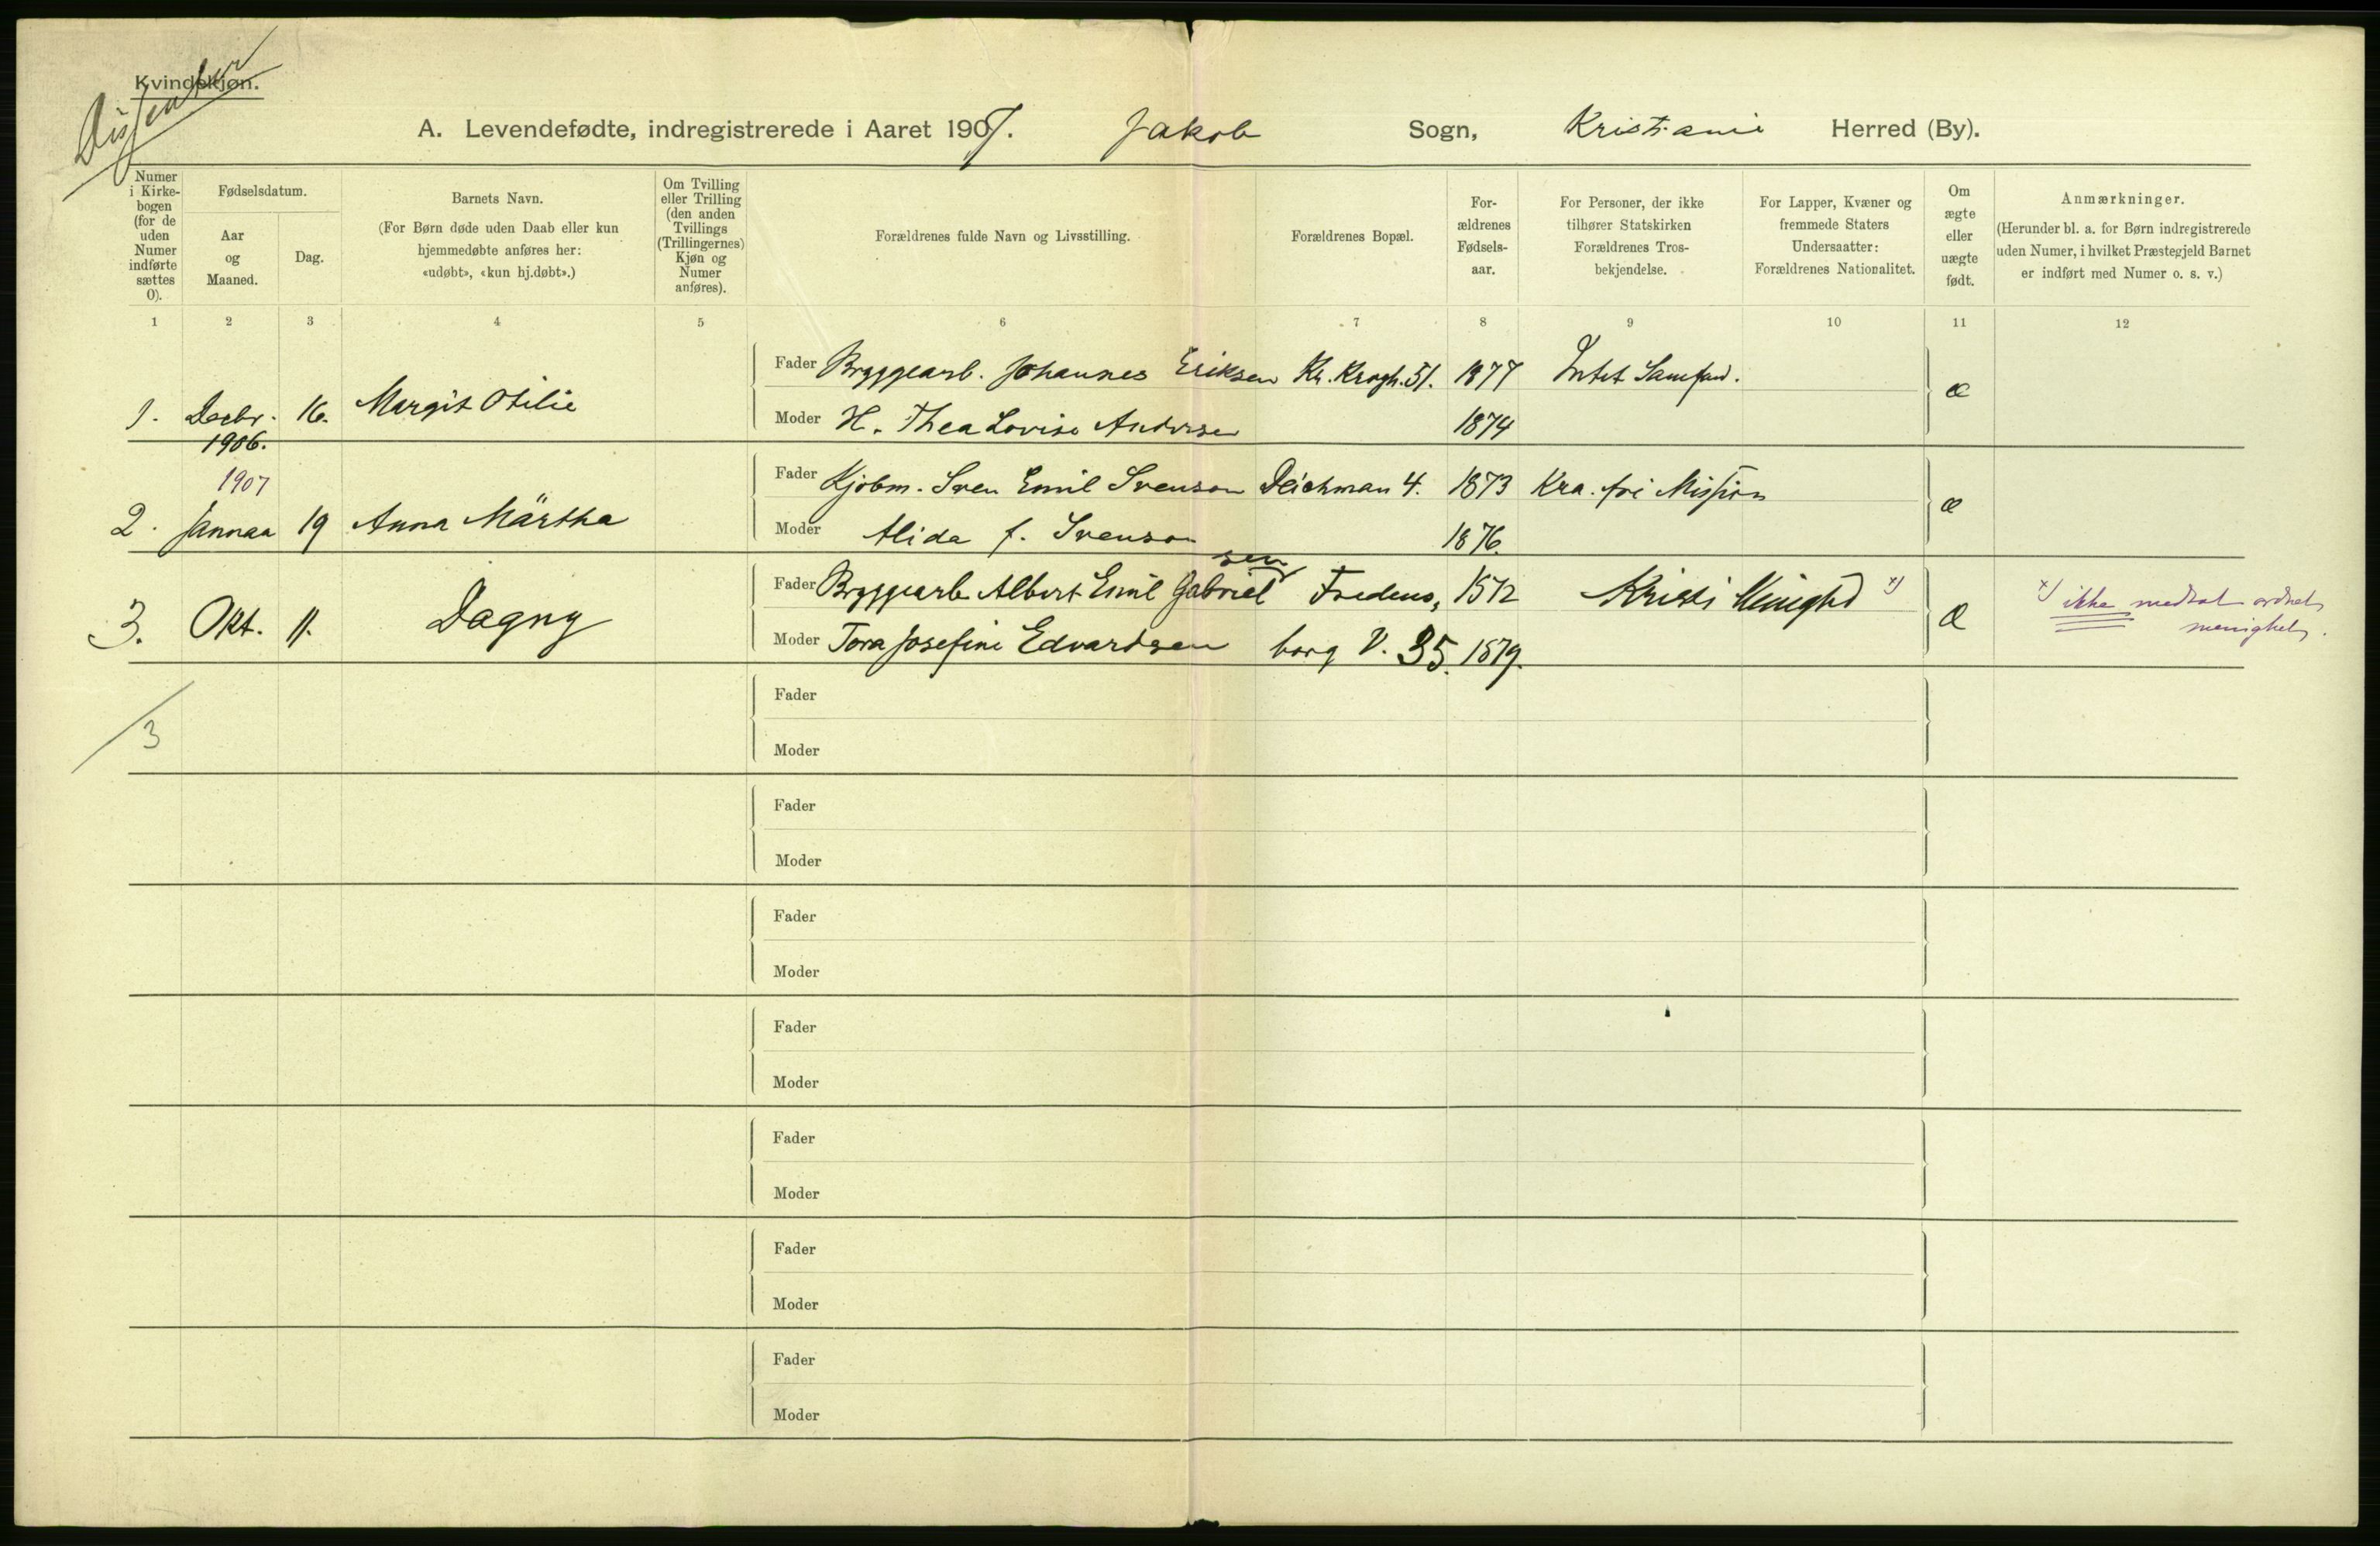 Kvindekjøn.
Dissenter
A. Levendefødte, indregistrerede i Aaret 1907. Jakob Sogn, Kristiania Herred (By).
Numer i Kirke-bogen (for de uden Numer indførte sættes 0).
Fødselsdatum.
Aar og Maaned.
Dag.
Barnets Navn.
(For Børn døde uden Daab eller kun hjemmedøbte anføres her: «udøbt», «kun hj.døbt».)
Om Tvilling eller Trilling (den anden Tvillings (Trillingernes) Kjøn og Numer anføres).
Forældrenes fulde Navn og Livsstilling.
Forældrenes Bopæl.
For-ældrenes Fødsels-aar.
For Personer, der ikke tilhører Statskirken Forældrenes Tros-bekjendelse.
For Lapper, Kvæner og fremmede Staters Undersaatter: Forældrenes Nationalitet.
Om ægte eller uægte født.
Anmærkninger.
(Herunder bl. a. for Børn indregistrerede uden Numer, i hvilket Præstegjeld Barnet er indført med Numer o. s. v.)
1 2 3 4 5 6 7 8 9 10 11 12
Fader Bryggearb. Johannes Eriksen Kr. Krogh. 51. 1877 Intet Samfund.
1. Decbr. 1906. 16. Margit Otilie æ
Moder H. Thea Lovise Andersen 1874
1907
Fader Kjøbm. Sven Emil Svenson Deichman 4. 1873 Kra. fri Mission
2. Januar 19 Anna Märtha æ
Moder Alida f. Svenson 1876.
Fader Bryggearb Albert Emil Gabrielsen Fredens, 1872 Kristi Menighd x)
3. Okt. 11. Dagny æ
Moder Tora Josefine Edvardsen borg V. 35. 1879.
x) ikke medtat ordnet
menighet.
3
Fader
Moder
Fader
Moder
Fader
Moder
Fader
Moder
Fader
Moder
Fader
Moder
Fader
Moder